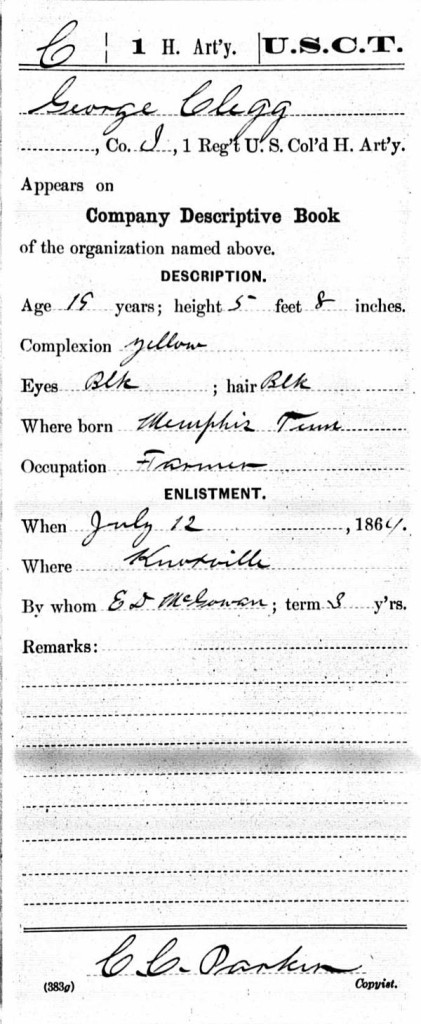 C | 1 H. Art'y. | U.S.C.T.
George Clegg
, Co. I, 1 Reg't U. S. Col'd H. Art'y.
Appears on
Company Descriptive Book
of the organization named above.
DESCRIPTION.
Age 19 years; height 5 feet 8 inches.
Complexion yellow
Eyes Blk ; hair Blk
Where born Memphis Tenn
Occupation Farmer
ENLISTMENT.
When July 12, 1864.
Where Knoxville
By whom E D McGowan; term 3 y'rs.
Remarks:
C. C. Parker
(383g) Copyist.